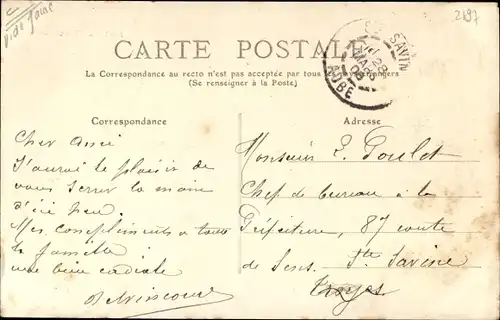 2197
CARTE POSTALE
La Correspondance au recto n'est pas acceptée par tous les pays étrangers
(Se renseigner à la Poste)
SAVIN
28
AUBE
Correspondance
Adresse
Cher ami
J'aurai le plaisir de
vous serrer la main
d'ici peu.
Mes compliments à toute
la famille
une bien cordiale
Monsieur E. Poulot
Chef de bureau à la
Préfecture, 87 route
de Sens. Ste Savine
Troyes